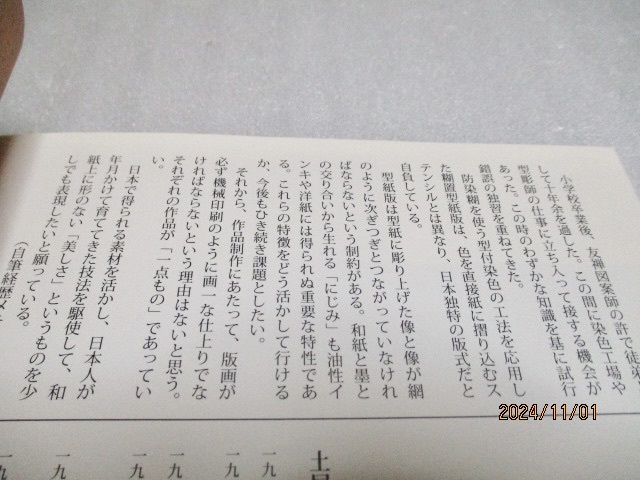 小学校卒業後、友禅図案師の許で徒弟
して十年余を過した。この間に染色工場や
型彫師の仕事に立ち入って接する機会が
あった。この時のわずかな知識を基に試行
錯誤の独習を重ねてきた。
防染糊を使う型付染色の工法を応用し
た糊置型紙版は、色を直接紙に摺り込むス
テンシルとは異なり、日本独特の版式だと
自負している。
型紙版は型紙に彫り上げた像と像が網
のように次ぎつぎとつながっていなけれ
ばならないという制約がある。和紙と墨と
の交り合いから生れる「にじみ」も油性イ
ンキや洋紙には得られぬ重要な特性であ
る。これらの特徴をどう活かして行ける
か、今後もひき続き課題としたい。
それから、作品制作にあたって、版画が
必ず機械印刷のように画一な仕上りでな
ければならないという理由はないと思う。
それぞれの作品が「一点もの」であってい
い。
日本で得られる素材を活かし、日本人が
年月かけて育ててきた技法を駆使して、和
紙上に形のない「美しさ」というものを少
しでも表現したいと願っている。
（自筆経歴メ
一九
一九
一九
一九
一九
一九
2024/11/01